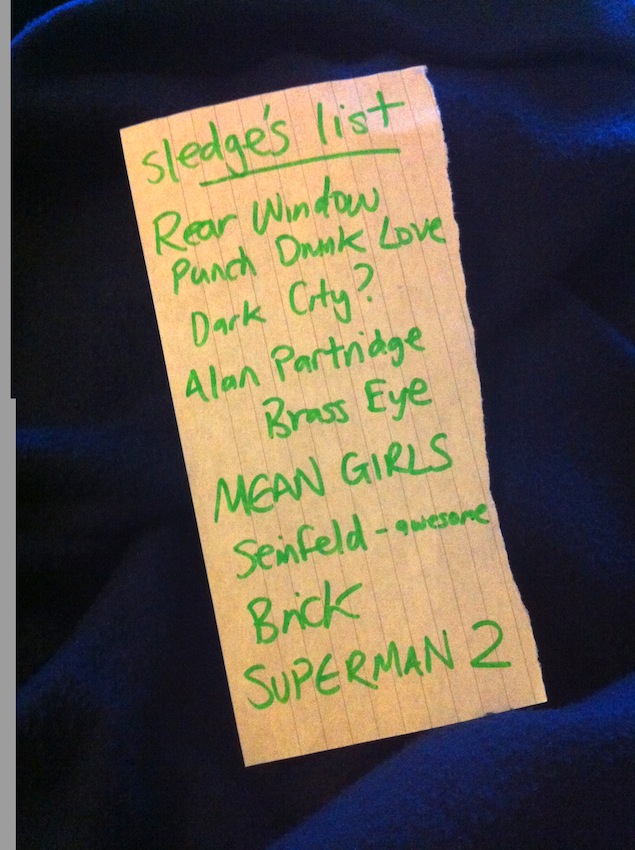 sledge's list
Rear Window
Punch Drunk Love
Dark City?
Alan Partridge
Brass Eye
MEAN GIRLS
Seinfeld - awesome
Brick
SUPERMAN 2